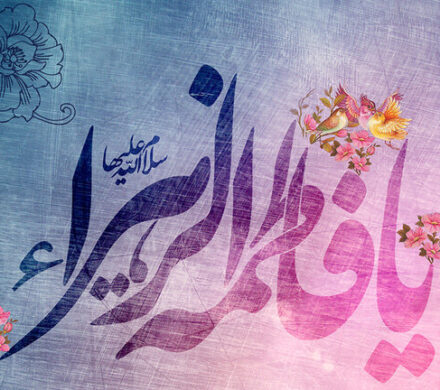 یا فاطمة الزهراء
سلام الله علیها